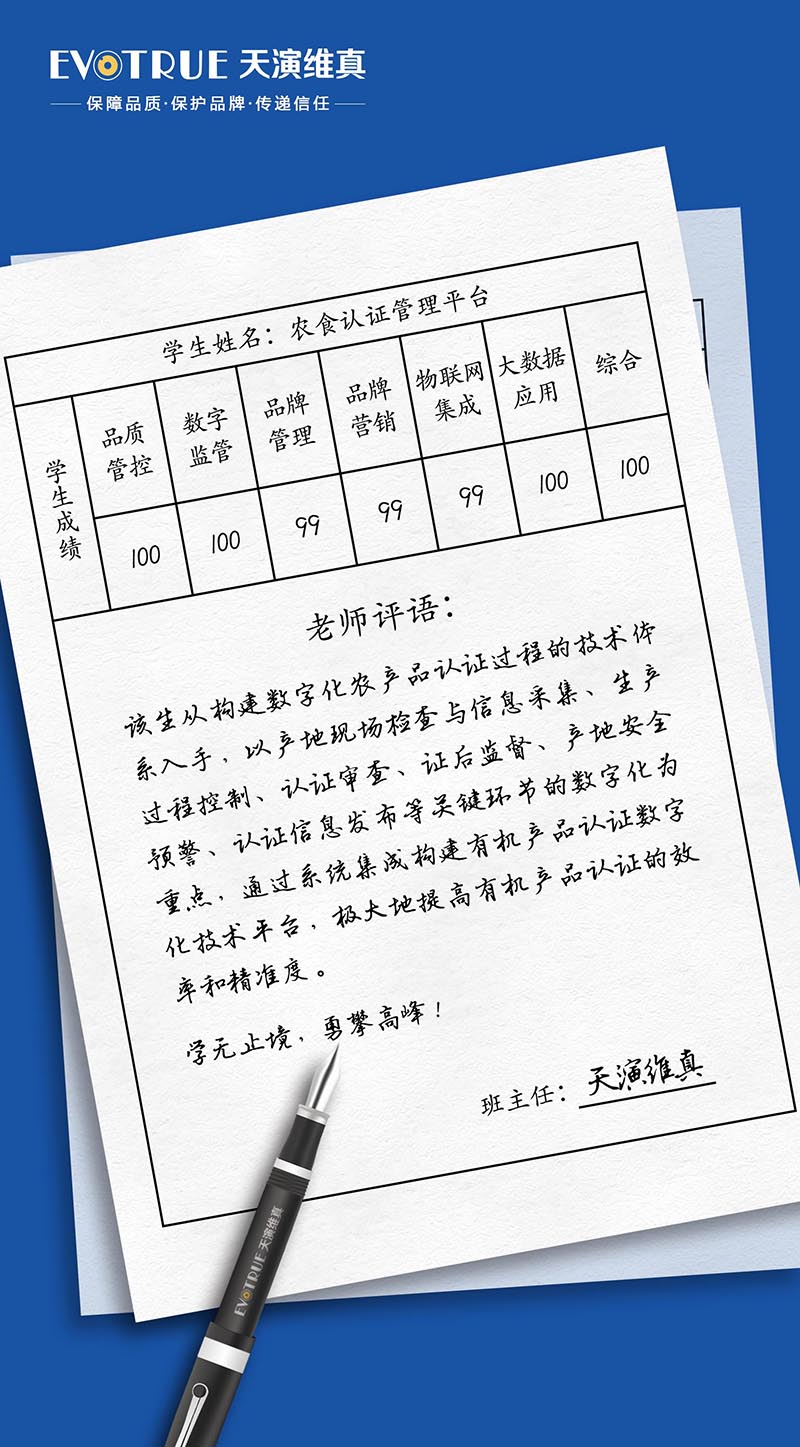 EVOTRUE 天演维真
保障品质·保护品牌·传递信任
学生姓名：农食认证管理平台
学生成绩
品质管控
数字监管
品牌管理
品牌营销
物联网集成
大数据应用
综合
100
100
99
99
99
100
100
老师评语：
该生从构建数字化农产品认证过程的技术体
系入手，以产地现场检查与信息采集、生产
过程控制、认证审查、证后监督、产地安全
预警、认证信息发布等关键环节的数字化为
重点，通过系统集成构建有机产品认证数字
化技术平台，极大地提高有机产品认证的效
率和精准度。
学无止境，勇攀高峰！
班主任：天演维真
EVOTRUE 天演维真